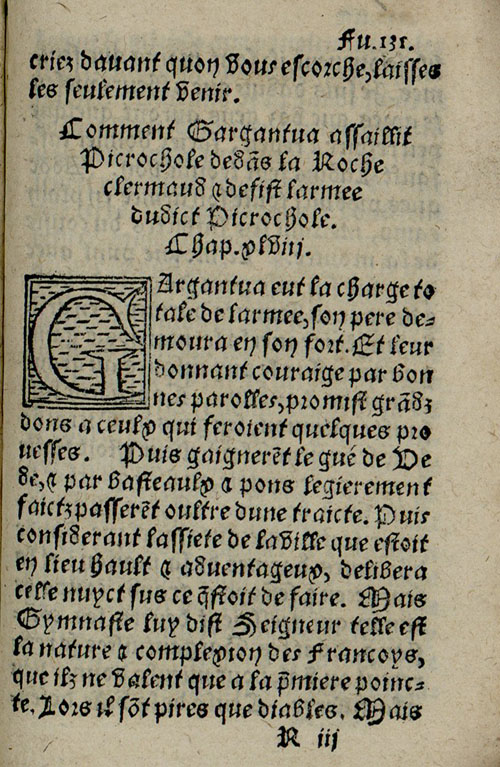 Fu.131.
criez davant quon vous escorche, laisses
les seulement venir.
Comment Gargantua assaillit
Picrochole dedãs la Roche
clermaud & defist larmee
dudict Picrochole.
Chap.xlviij.
GArgantua eut la charge to
tale de larmee, son pere de=
moura en son fort. Et leur
donnant couraige par bon
nes parolles, promist grãdz
dons a ceulx qui feroient quelques pro
uesses. Puis gaignerẽt le gué de Ve
de, & par basteaulx & pons legierement
faictz passerẽt oultre dune traicte. Puis
considerant lassiete de la ville que estoit
en lieu hault & adventageux, delibera
celle nuyct sus ce q̃stoit de faire. Mais
Gymnaste luy dist Seigneur telle est
la nature & complexion des Francoys,
que ilz ne valent que a la p̃miere poinc=
te. Lors il sõt pires que diables. Mais
R iij